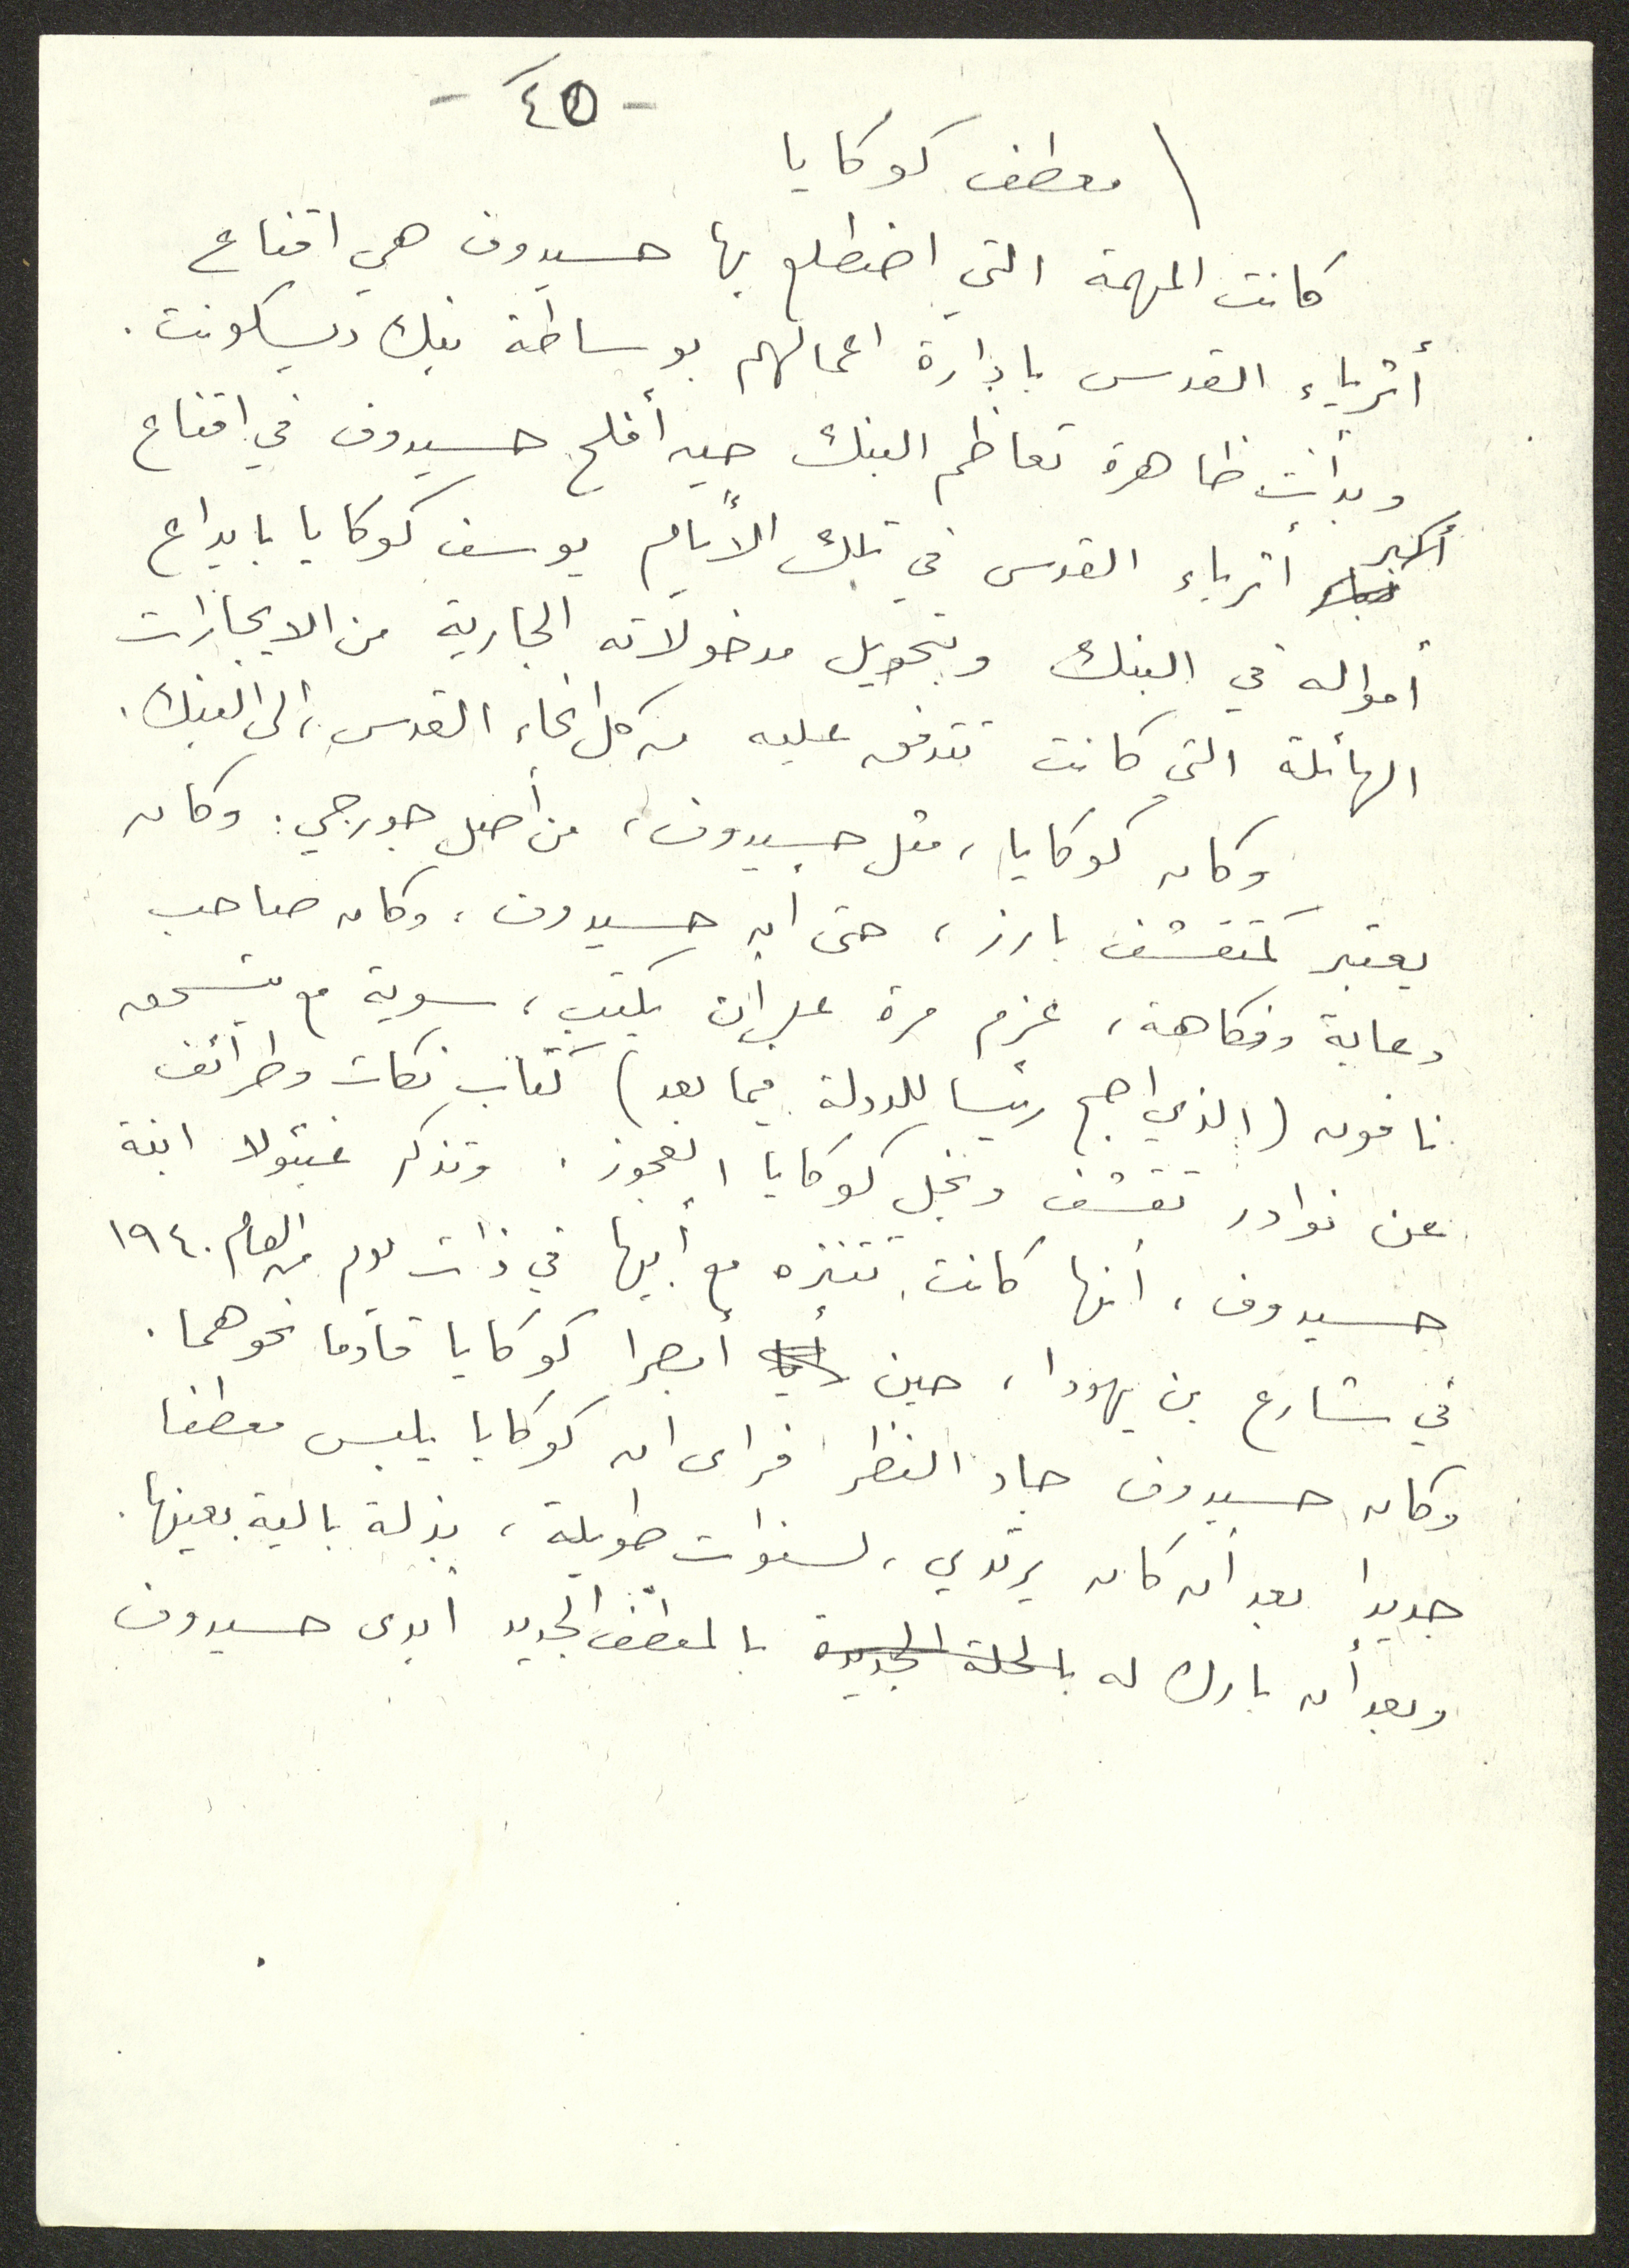 - ٤٥ -
معطف كوكايا
كانت المهمة التي اضطلع بها حسيدوف هي اقناع
أثرياء القدس بادارة اعمالهم بوساطة بنك ديسكونت.
وبدأت ظاهرة تعاظم البنك حين أفلح حسيدوف في اقناع
أكبر أثرياء القدس في تلك الأيام يوسف كوكايا بايداع
أمواله في البنك وبتحويل مدخولاته الجارية من الايجارات
الهائلة التي كانت تتدفق عليه من كل انحاء القدس، الى البنك.
وكان كوكايا، مثل حسيدوف، من أصل جورجي. وكان
يعتبر كمتقشف بارز، حتى أن حسيدوف، وكان صاحب
دعابة وفكاهة، عزم مرة على أن يكتب، سوية مع يتسحق
نافون (الذي اصبح رئيسا للدولة فيما بعد) كتاب نكات وطرائف
عن نوادر تقشف وبخل كوكايا العجوز. وتذكر غيئولا ابنة
حسيدوف، أنها كانت تتنزه مع أبيها في ذات يوم من العام ١٩٤٠
في شارع بن يهودا، حين أبصرا كوكايا قادما نحوهما.
وكان حسيدوف حاد النظر فرأى ان كوكايا يلبس معطفا
جديدا بعد أن كان يرتدي، لسنوات طويلة، بذلة بالية بعينها.
وبعد أن بارك له بالحلة الجديدة بالمعطف الجديد أبدى حسيدوف